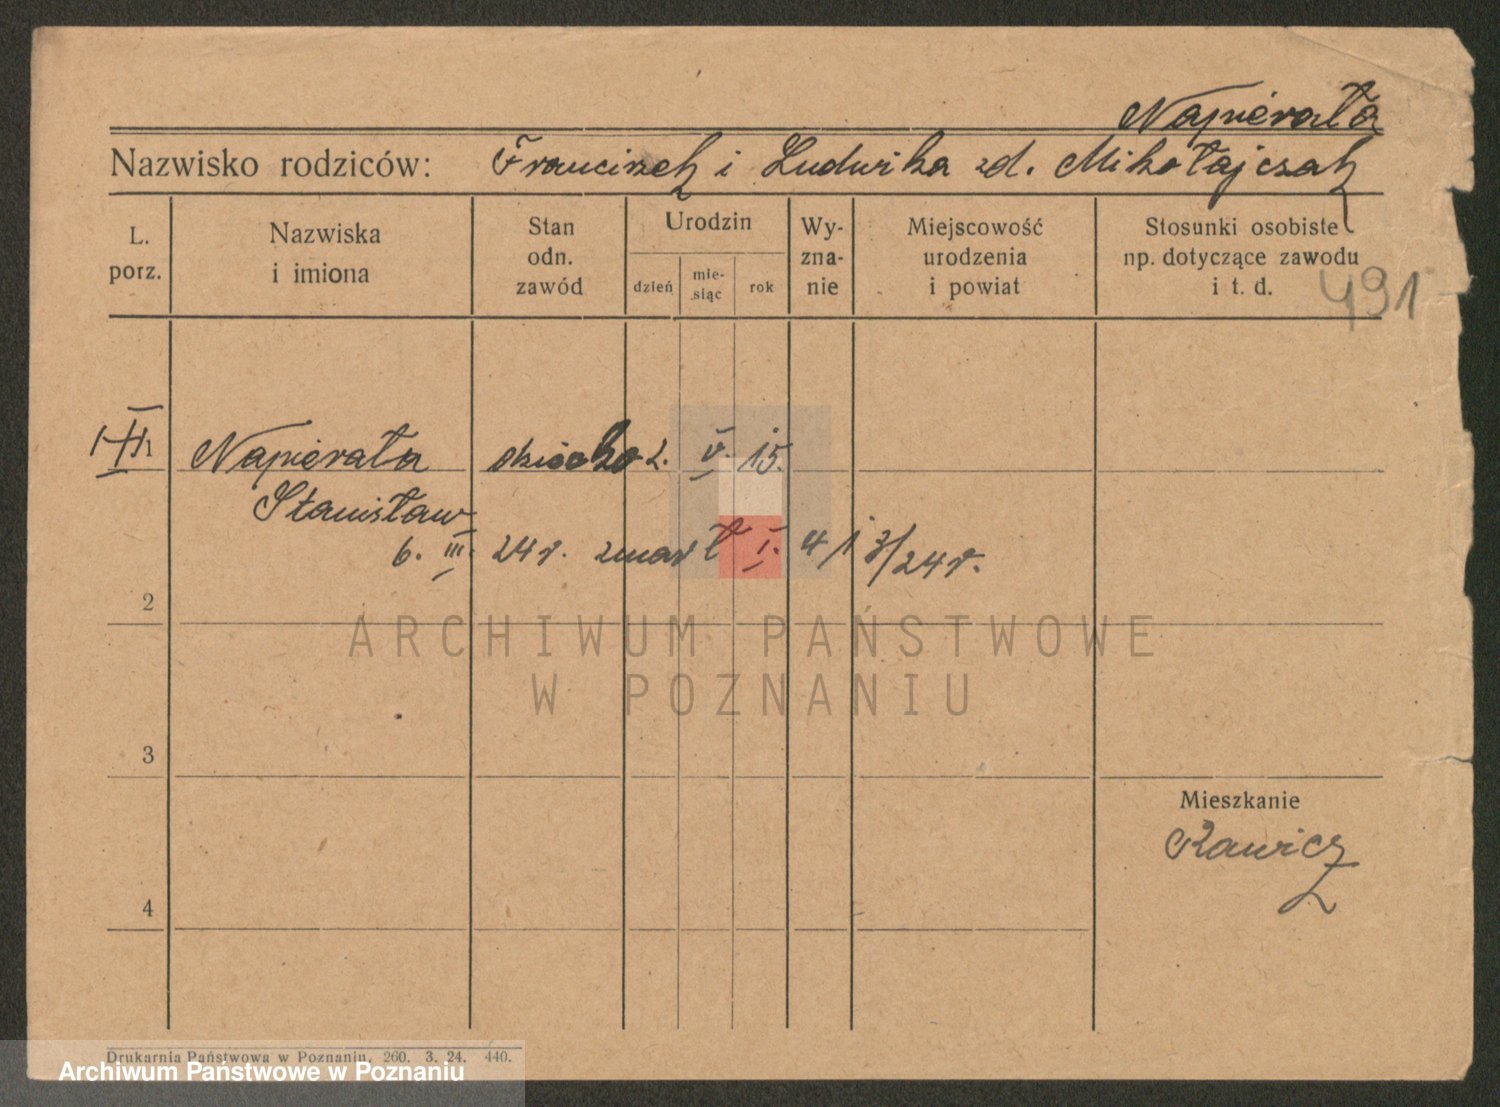 Napierała
Nazwisko rodziców: Franciszek i Ludwika zd. Mikołajczak
L. porz.
Nazwiska i imiona
Stan odn. zawód
Urodzin
dzień
mie- siąc
rok
Wy- zna- nie
Miejscowość urodzenia i powiat
Stosunki osobiste np. dotyczące zawodu i t. d.
491
Napierała dziecko 2. V. 15.
Stanisław
6. III. 24 r. zmarł I. 4/ 24 r.
2
ARCHIWUM PAŃSTWOWE
W POZNANIU
3
Mieszkanie
Rawicz
4
Drukarnia Państwowa w Poznaniu. 260. 3. 24. 440.
Archiwum Państwowe w Poznaniu